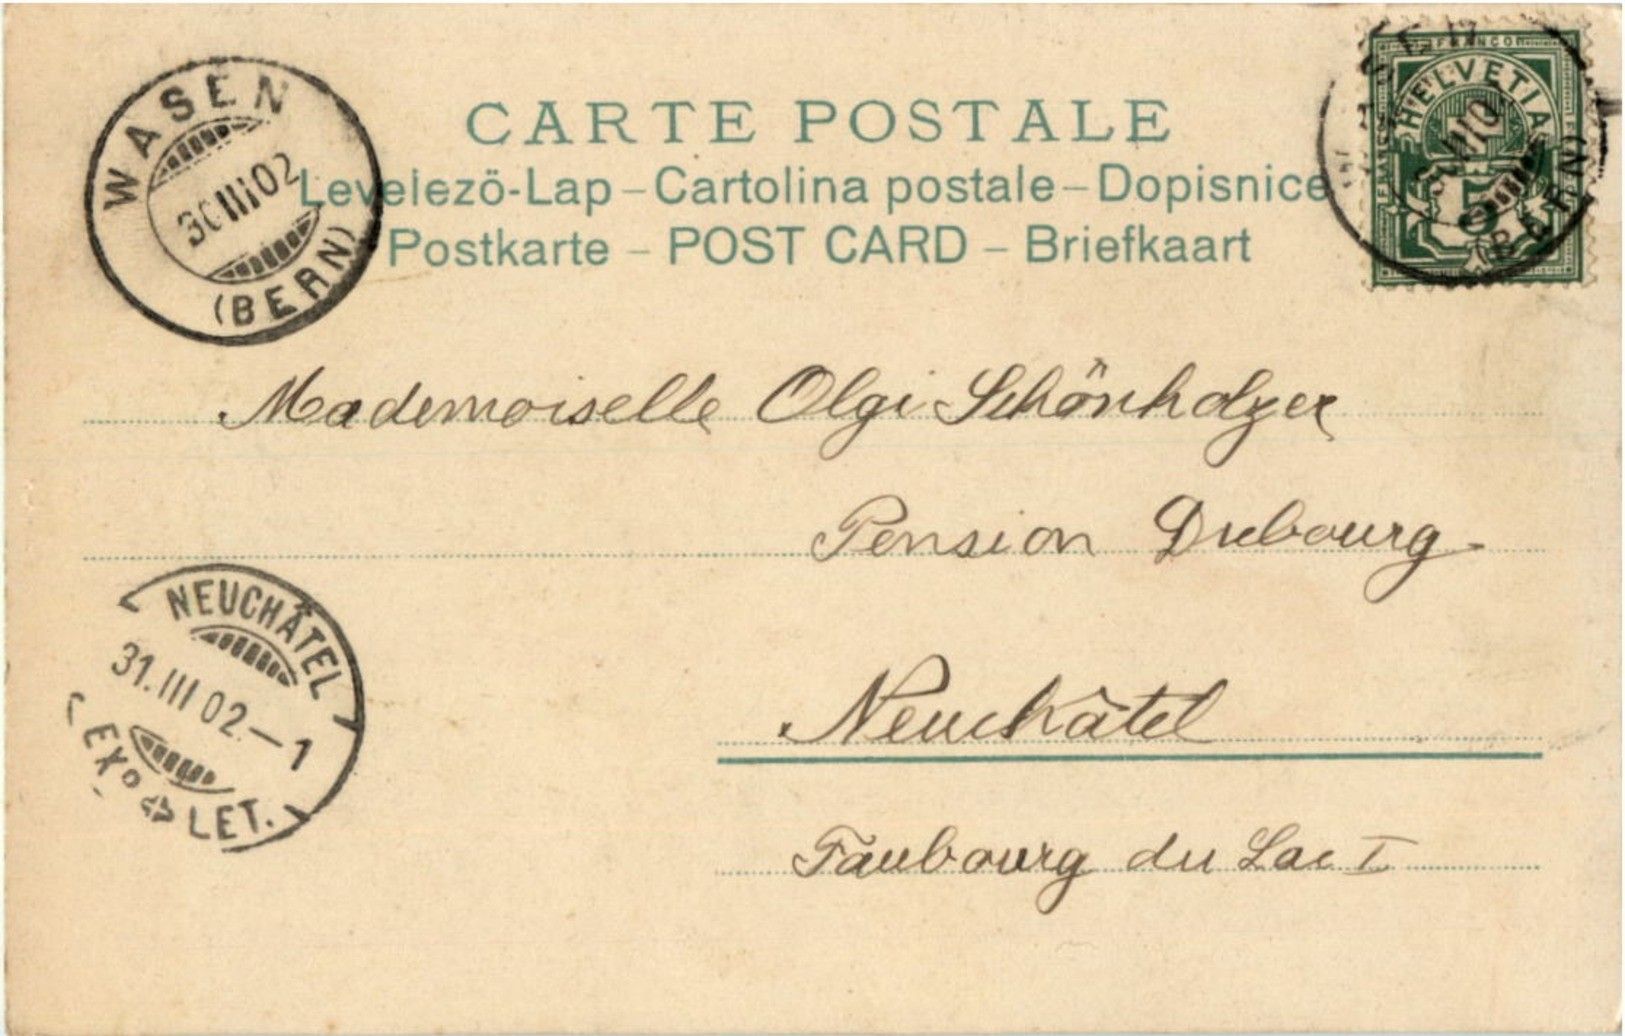 CARTE POSTALE
Levelezö-Lap – Cartolina postale – Dopisnice
Postkarte – POST CARD – Briefkaart
WASEN
30 III 02
(BERN)
FRANCO
HELVETIA
5
(BERN)
Mademoiselle Olgi Schönholzer
Pension Drebourg
Neuchâtel
Faubourg du Lac I
NEUCHÂTEL
31. III 02. – 1
EXP. LET.